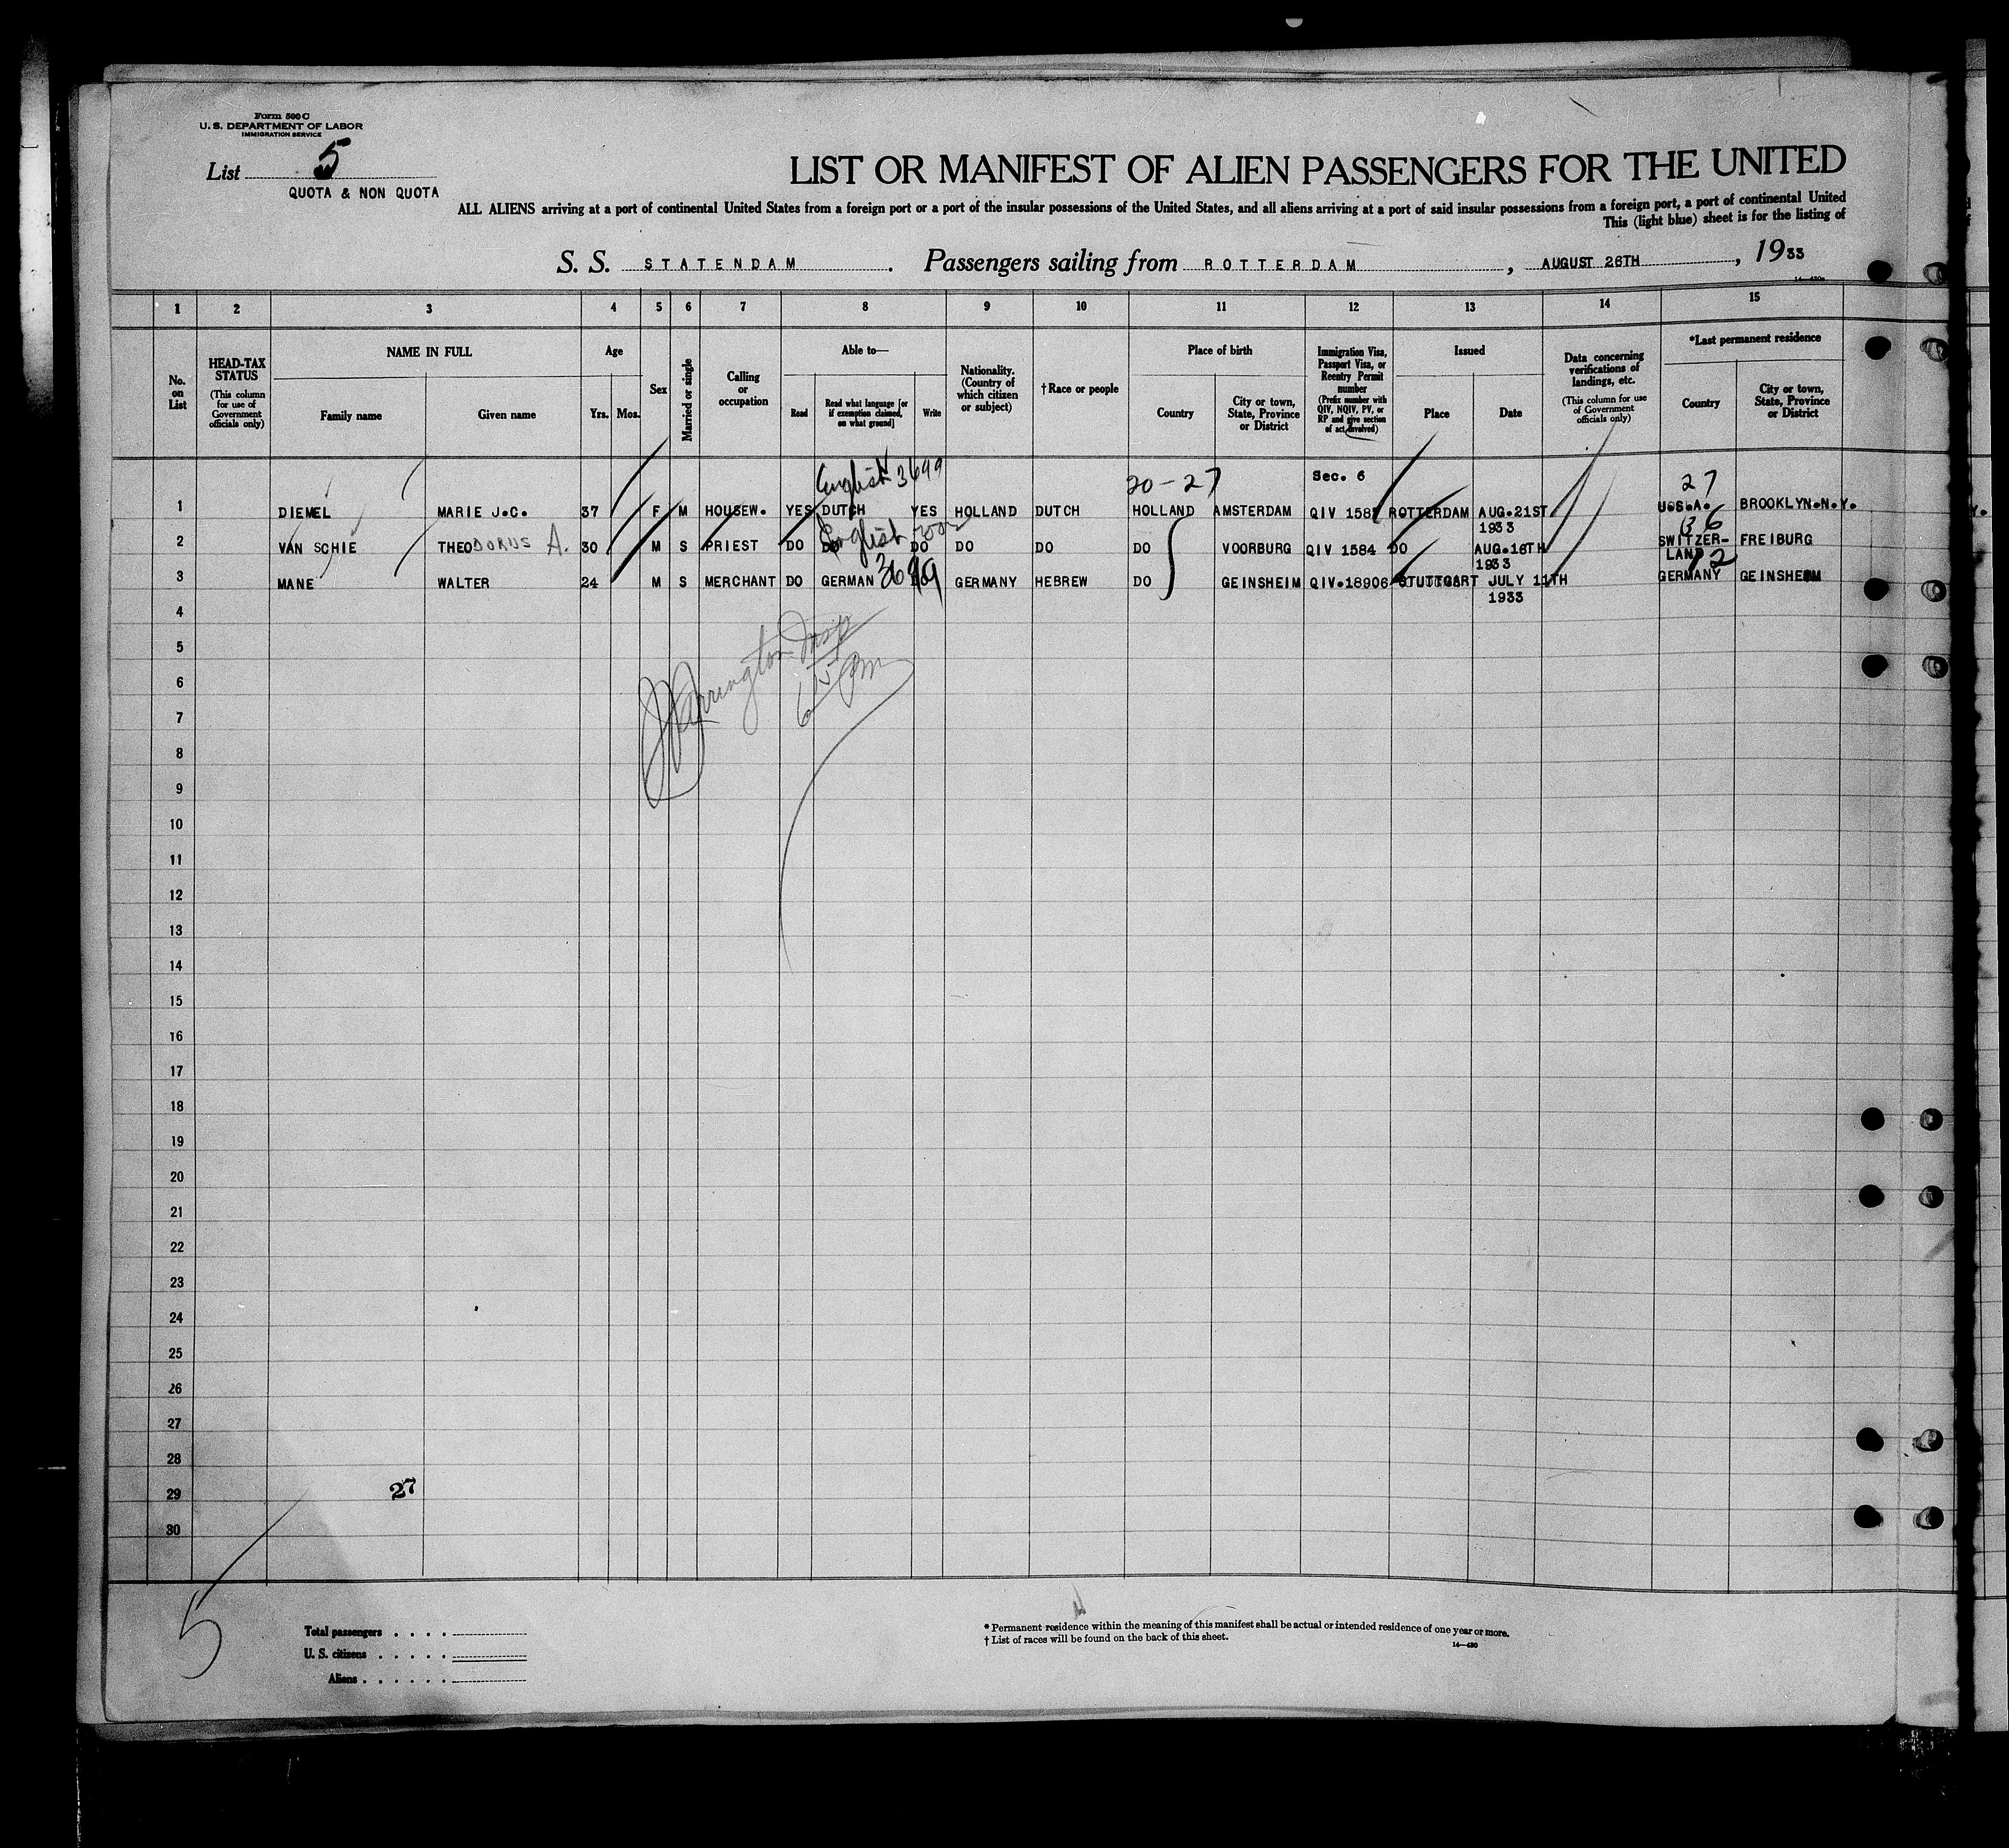 Form 500 C
U. S. DEPARTMENT OF LABOR
IMMIGRATION SERVICE
List 5
QUOTA & NON QUOTA
LIST OR MANIFEST OF ALIEN PASSENGERS FOR THE UNITED
ALL ALIENS arriving at a port of continental United States from a foreign port or a port of the insular possessions of the United States, and all aliens arriving at a port of said insular possessions from a foreign port, a port of continental United
This (light blue) sheet is for the listing of
S. S. STATENDAM. Passengers sailing from ROTTERDAM, AUGUST 26TH, 1933
1 2 3 4 5 6 7 8 9 10 11 12 13 14 15
No. on List
HEAD-TAX STATUS
(This column for use of Government officials only)
NAME IN FULL
Family name Given name
Age
Yrs. Mos.
Sex
Married or single
Calling or occupation
Able to—
Read
Read what language [or if exemption claimed, on what ground]
Write
Nationality. (Country of which citizen or subject)
† Race or people
Place of birth
Country
City or town, State, Province or District
Immigration Visa, Passport Visa, or Reentry Permit number
(Prefix number with QIV, NQIV, PV, or RP and give section of act involved)
Issued
Place Date
Data concerning verifications of landings, etc.
(This column for use of Government officials only)
*Last permanent residence
Country
City or town, State, Province or District
English 3699 20-27 Sec. 6 27
1 DIEMEL MARIE J.C. 37 F M HOUSEW. YES DUTCH YES HOLLAND DUTCH HOLLAND AMSTERDAM QIV 1587 ROTTERDAM AUG.21ST 1933 U.S.A. BROOKLYN.N.Y.
English 36
2 VAN SCHIE THEODORUS A. 30 M S PRIEST DO DO DO DO DO DO VOORBURG QIV 1584 DO AUG.16TH 1933 SWITZER-LAND FREIBURG
3699 12
3 MANE WALTER 24 M S MERCHANT DO GERMAN DO GERMANY HEBREW DO GEINSHEIM QIV.18906 STUTTGART JULY 11TH 1933 GERMANY GEINSHEIM
4
5
6
7
8
9
10
11
12
13
14
15
16
17
18
19
20
21
22
23
24
25
26
27
28
29 27
30
5
Total passengers
U. S. citizens
Aliens
* Permanent residence within the meaning of this manifest shall be actual or intended residence of one year or more.
† List of races will be found on the back of this sheet.
14—430